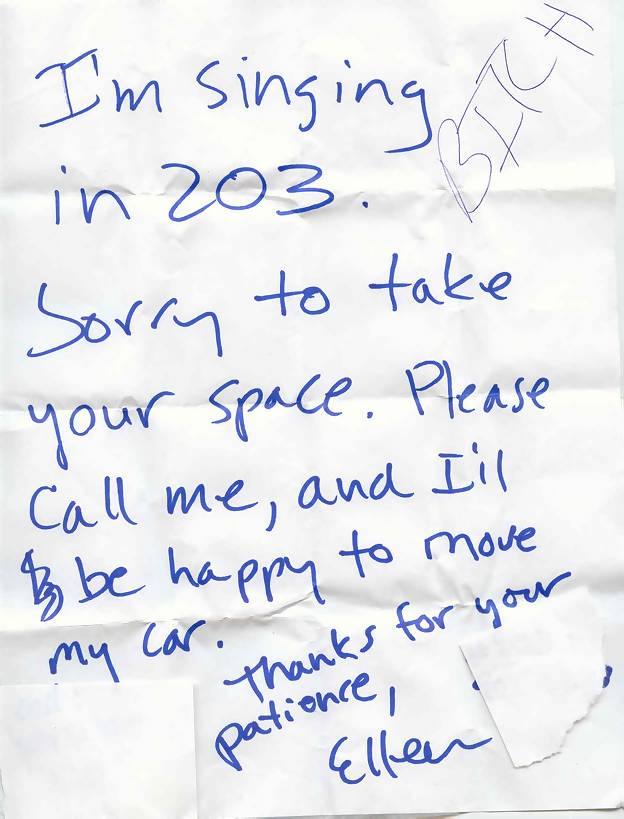 I'm singing
BITCH
in 203.
Sorry to take
your space. Please
Call me, and I'll
be happy to move
my car.
Thanks for your
patience,
Elleen